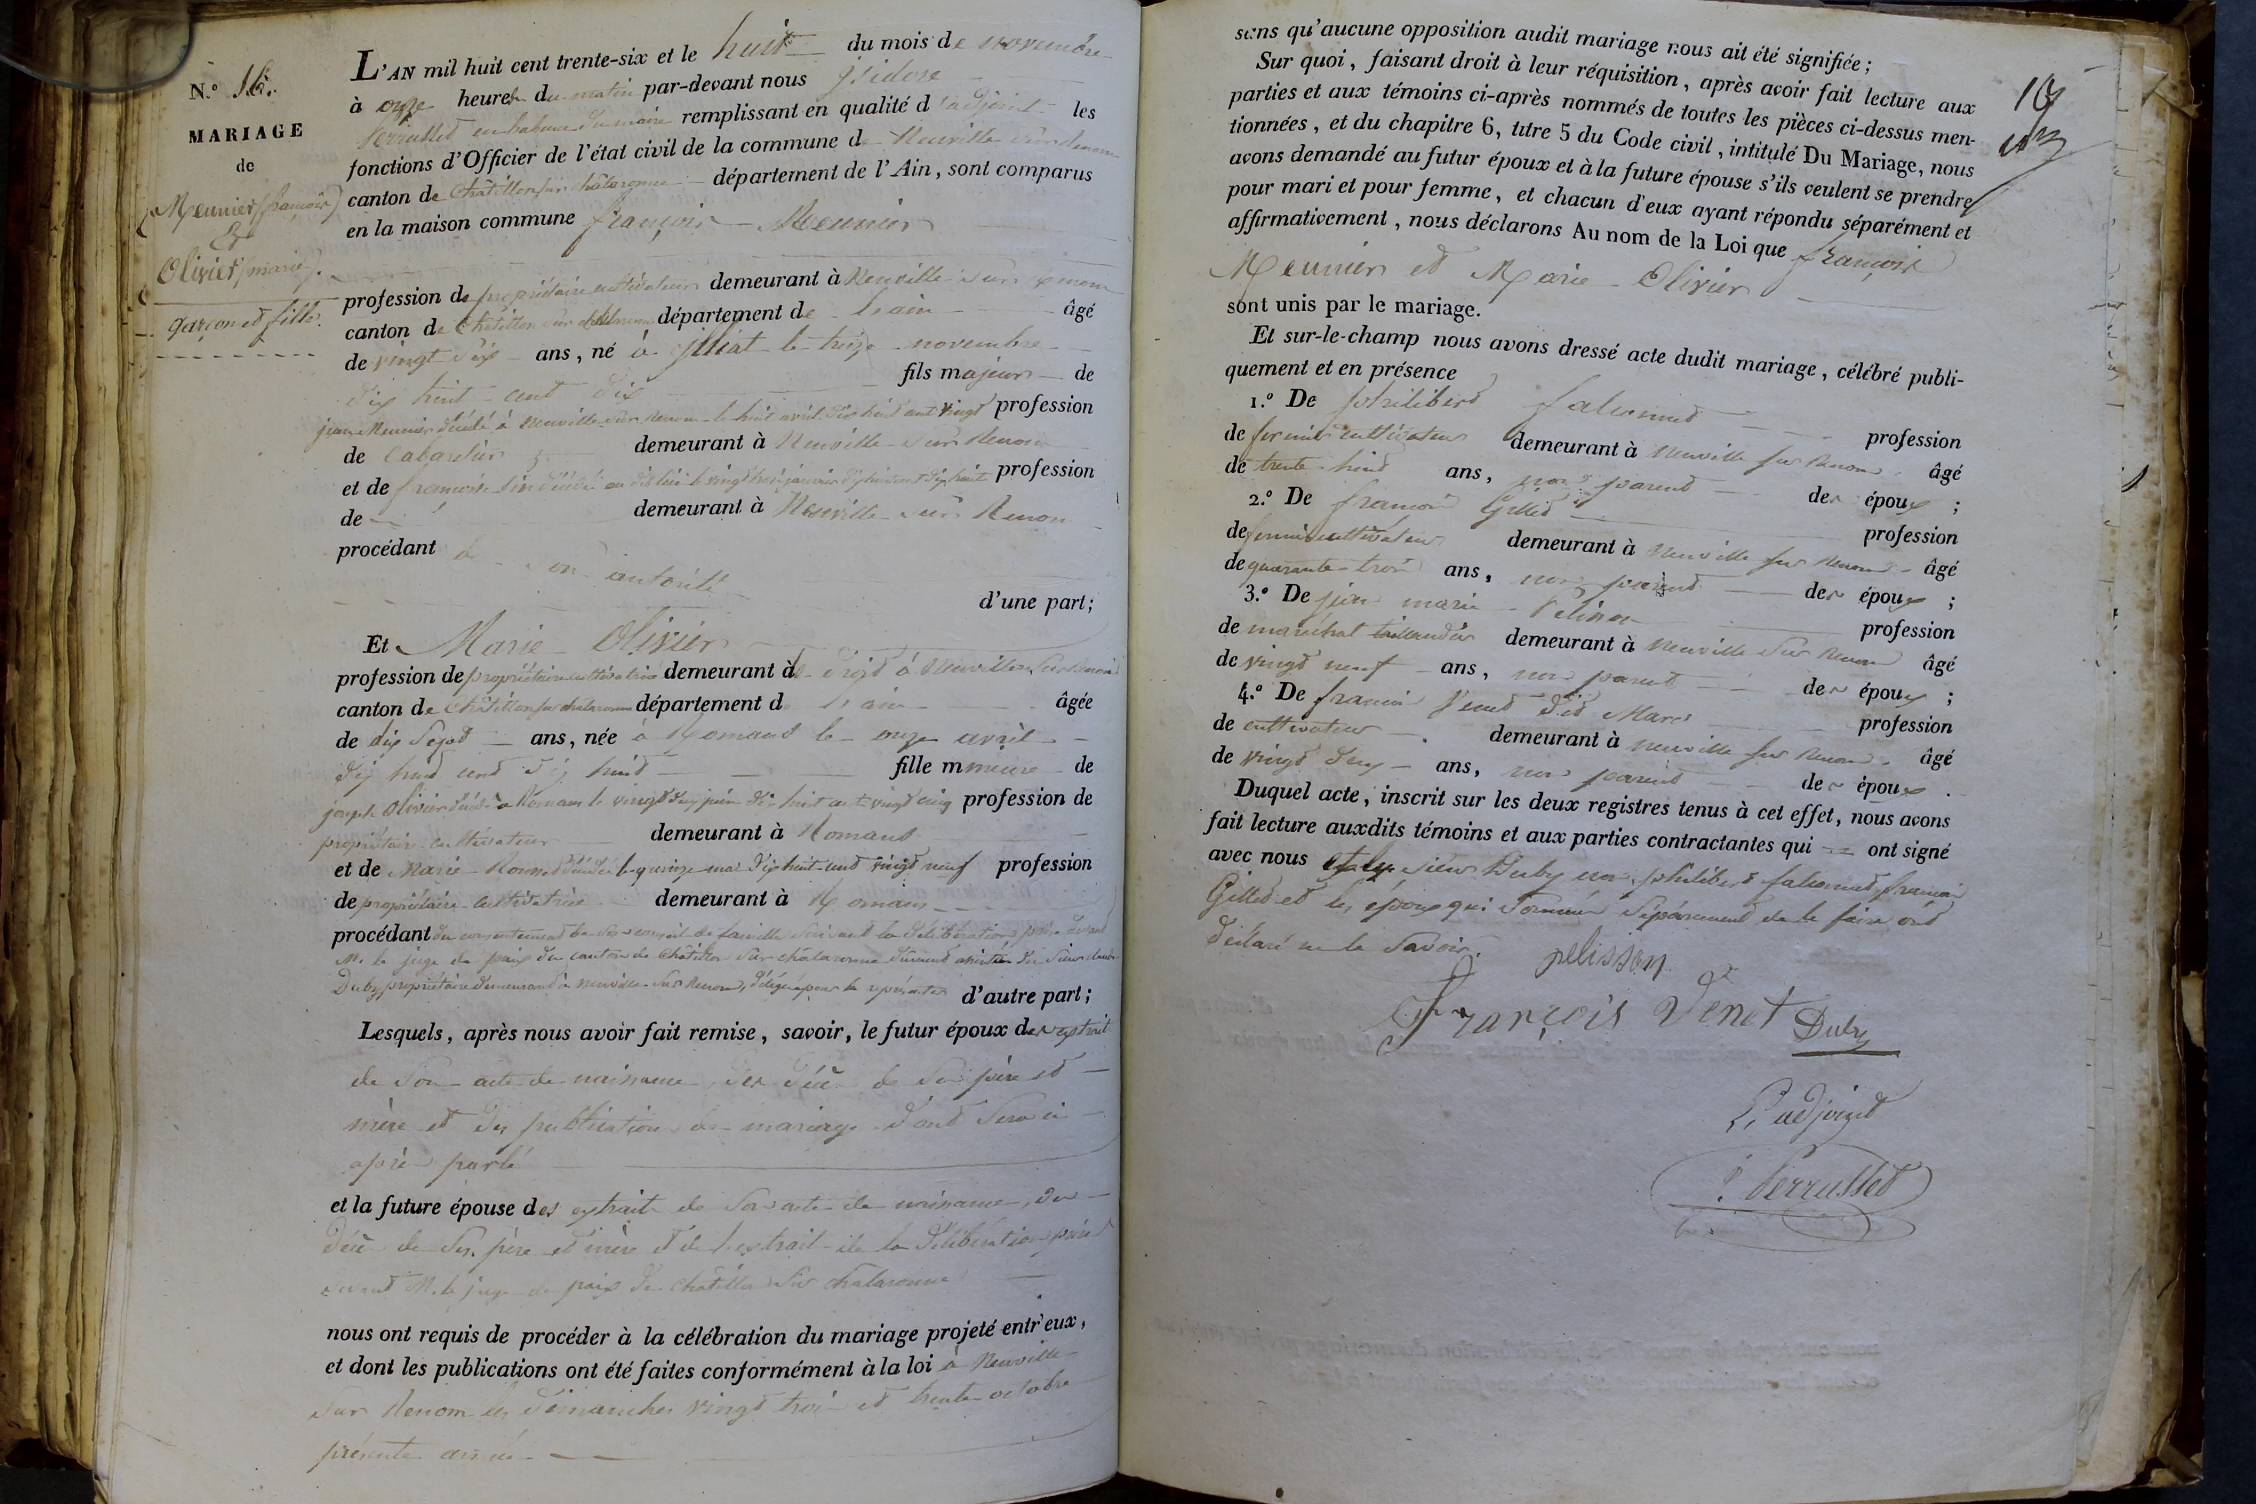 N.º 16.
MARIAGE
de
Meunier (françois)
&
Olivier (marie).
garçon et fille.
L'AN mil huit cent trente-six et le huit du mois de novembre
à onze heures du matin par-devant nous Isidore
Perrusset en l'absence du maire remplissant en qualité d'adjoint les
fonctions d'Officier de l'état civil de la commune de Neuville sur Renom
canton de Châtillon sur chalaronne département de l'Ain, sont comparus
en la maison commune françois Meunier
profession de propriétaire cultivateur demeurant à Neuville sur Renom
canton de Châtillon sur chalaronne département de l'ain âgé
de vingt six ans, né à illiat le treize novembre
dix huit cent dix fils majeur de
jean Meunier décédé à Neuville sur Renom le huit avril dix huit cent vingt profession
de Cabaretier demeurant à Neuville sur Renom
et de françoise décédée au dit lieu le vingt trois janvier dix huit cent dix huit profession
de demeurant à Neuville sur Renom
procédant de son autorité
d'une part;
Et Marie Olivier
profession de propriétaire cultivatrice demeurant à Neuville sur Renom
canton de Châtillon sur chalaronne département de l'ain âgée
de dix sept ans, née à Romans le onze avril
dix huit cent dix huit fille mineure de
joseph Olivier décédé à Romans le vingt deux juin dix huit cent vingt cinq profession de
propriétaire cultivateur demeurant à Romans
et de Marie décédée le quinze mai dix huit cent vingt neuf profession
de propriétaire cultivatrice demeurant à Romans
procédant du consentement de son conseil de famille suivant la délibération prise devant
M. le juge de paix du canton de Châtillon sur chalaronne du sieur
Duby propriétaire demeurant à Neuville sur Renom, délégué pour le représenter d'autre part;
Lesquels, après nous avoir fait remise, savoir, le futur époux des extrait
de son acte de naissance, des décès de ses père et
mère et des publications de mariage dont sera ci
après parlé
et la future épouse des extraits de son acte de naissance, du
décès de ses père et mère et de l'extrait de la délibération prise
devant M. le juge de paix de Châtillon sur chalaronne
nous ont requis de procéder à la célébration du mariage projeté entr'eux,
et dont les publications ont été faites conformément à la loi à Neuville
sur Renom les dimanches vingt trois et trente octobre
présente année
sans qu'aucune opposition audit mariage nous ait été signifiée;
Sur quoi, faisant droit à leur réquisition, après avoir fait lecture aux
parties et aux témoins ci-après nommés de toutes les pièces ci-dessus men-
tionnées, et du chapitre 6, titre 5 du Code civil, intitulé Du Mariage, nous
avons demandé au futur époux et à la future épouse s'ils veulent se prendre
pour mari et pour femme, et chacun d'eux ayant répondu séparément et
affirmativement, nous déclarons Au nom de la Loi que françois
Meunier et Marie Olivier
sont unis par le mariage.
Et sur-le-champ nous avons dressé acte dudit mariage, célébré publi-
quement et en présence
1.º De philibert falconnet profession
de fermier cultivateur demeurant à Neuville sur Renom âgé
de trente huit ans, non parent des époux ;
2.º De françois Gillet profession
de fermier cultivateur demeurant à Neuville sur Renom âgé
de quarante trois ans, non parent des époux ;
3.º De jean marie Pelisson profession
de maréchal taillandier demeurant à Neuville sur Renom âgé
de vingt neuf ans, non parent des époux ;
4.º De françois Venet dit Marc profession
de cultivateur demeurant à Neuville sur Renom âgé
de vingt deux ans, non parent des époux .
Duquel acte, inscrit sur les deux registres tenus à cet effet, nous avons
fait lecture auxdits témoins et aux parties contractantes qui ont signé
avec nous et le sieur Duby non philibert falconnet, françois
Gillet et les époux qui sommés séparément de le faire ont
déclaré ne le savoir.
pelisson
François Venet Duby
L'adjoint
I. Perrusset